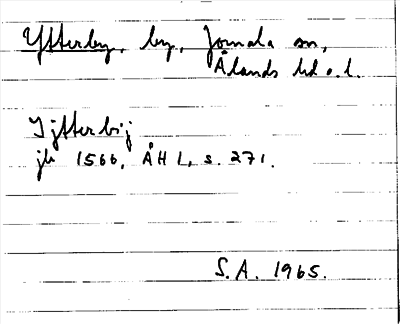 Ytterby, by, Jomala sn,
Ålands hd o. l.
I ytterbij
jb 1566, ÅH I, s. 271.
S.A. 1965.